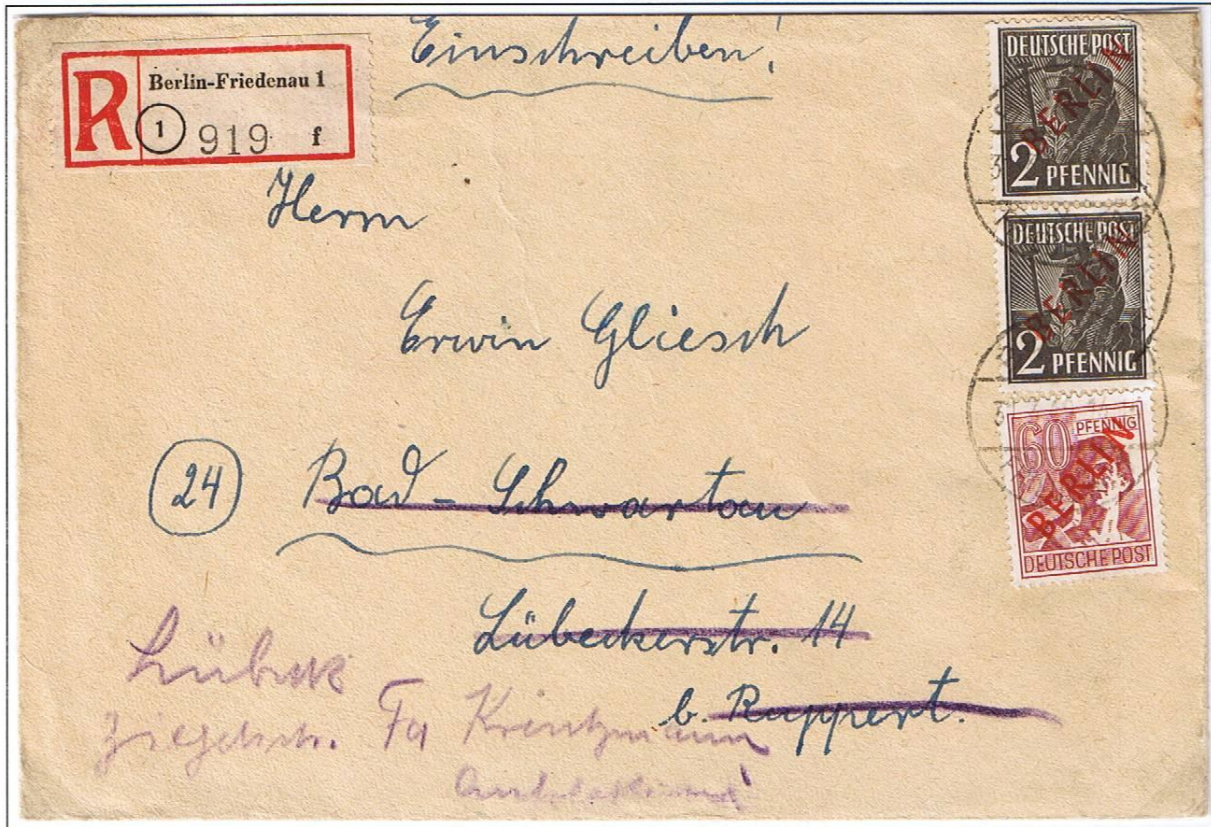 Einschreiben!
R Berlin-Friedenau 1
1 919 f
DEUTSCHE POST
BERLIN
2 PFENNIG
DEUTSCHE POST
BERLIN
2 PFENNIG
60 PFENNIG
BERLIN
DEUTSCHE POST
Herrn
Erwin Gliesch
24 Bad-Schwartau
Lübeckerstr. 14
b. Ruppert.
Lübeck
Ziegelstr. Fa